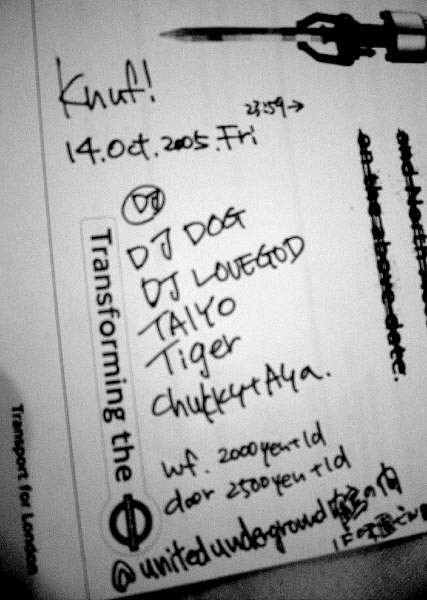 Knuf!
23:59→
14.Oct.2005.Fri
DJ
DJ DOG
DJ LOVEGOD
TAIYO
Tiger
Chukky+Aya.
wf. 2000yen+1d
door 2500yen+1d
@unitedunderground
Transforming the
Transport for London
on the above date.
and North